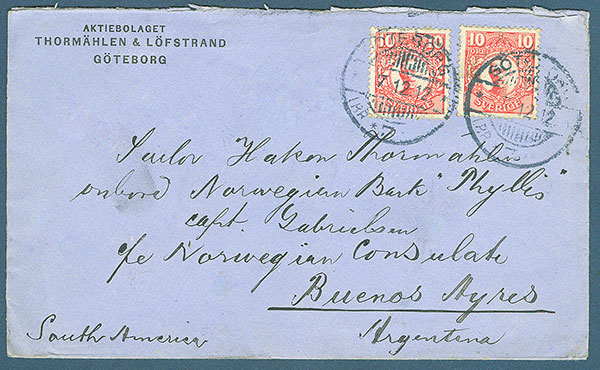 AKTIEBOLAGET
THORMÄHLEN & LÖFSTRAND
GÖTEBORG
10 10 10
SVERIGE SVERIGE
12.12
Sailor Hakon Thormählen
onbord Norwegian Bark "Phyllis"
capt. Gabrielsen
c/o Norwegian Consulate
Buenos Ayres
South America Argentena